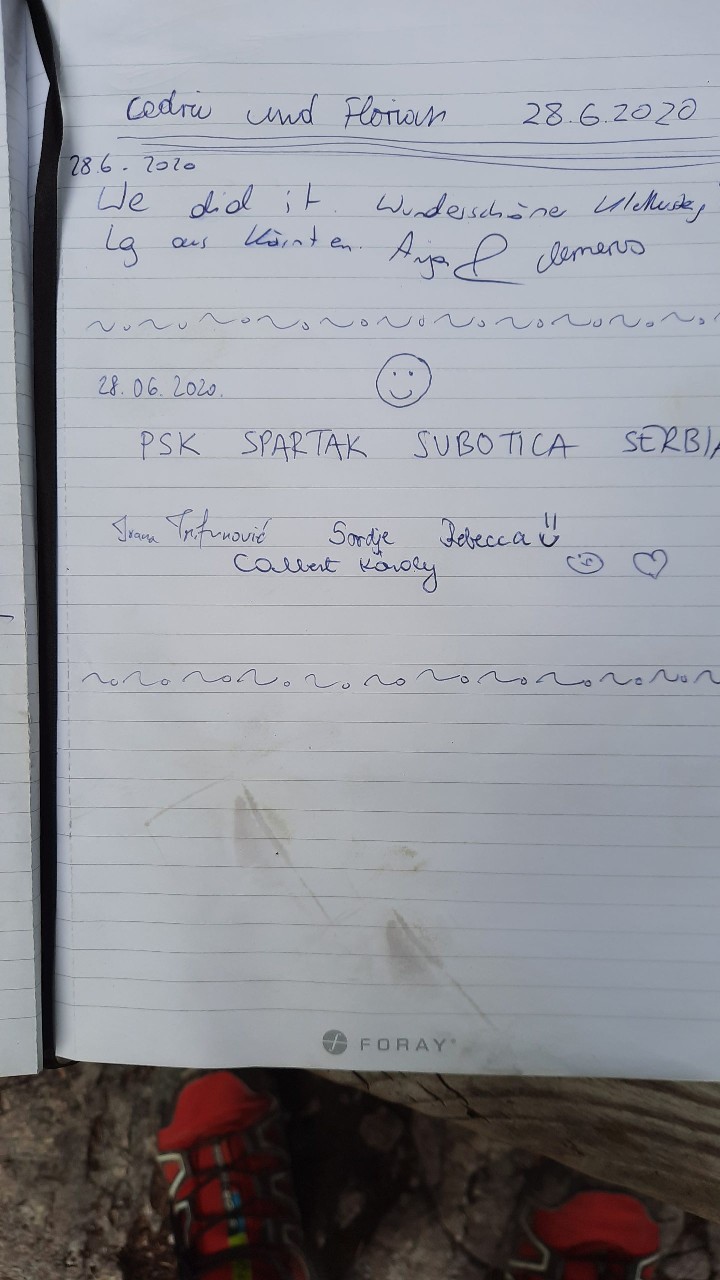 Cedric und Florian 28.6.2020
28.6. 2020
We did it. Wunderschöne
Lg aus Kärnten. Anja &
28.06.2020.
PSK SPARTAK SUBOTICA SERBIA
Ivana Trifunović Rebecca
Károly
FORAY